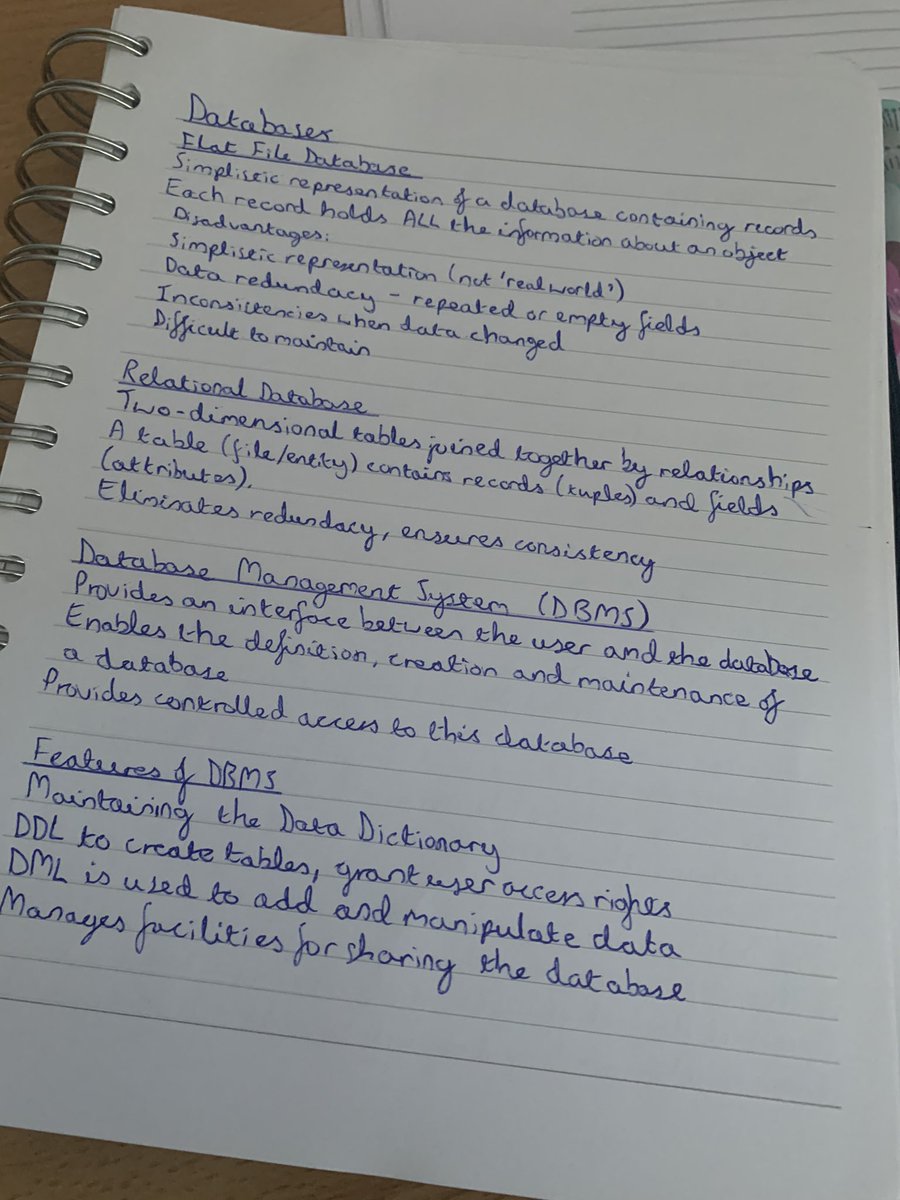 Databases
Flat File Database
Simplistic representation of a database containing records
Each record holds ALL the information about an object
Disadvantages:
Simplistic representation (not 'real world')
Data redundacy - repeated or empty fields
Inconsistencies when data changed
Difficult to maintain
Relational Database
Two-dimensional tables joined together by relationships
A table (file/entity) contains records (tuples) and fields
(attributes).
Eliminates redundacy, ensures consistency
Database Management System (DBMS)
Provides an interface between the user and the database
Enables the definition, creation and maintenance of
a database
Provides controlled access to this database
Features of DBMS
Maintaining the Data Dictionary
DDL to create tables, grant user access rights
DML is used to add and manipulate data
Manages facilities for sharing the database